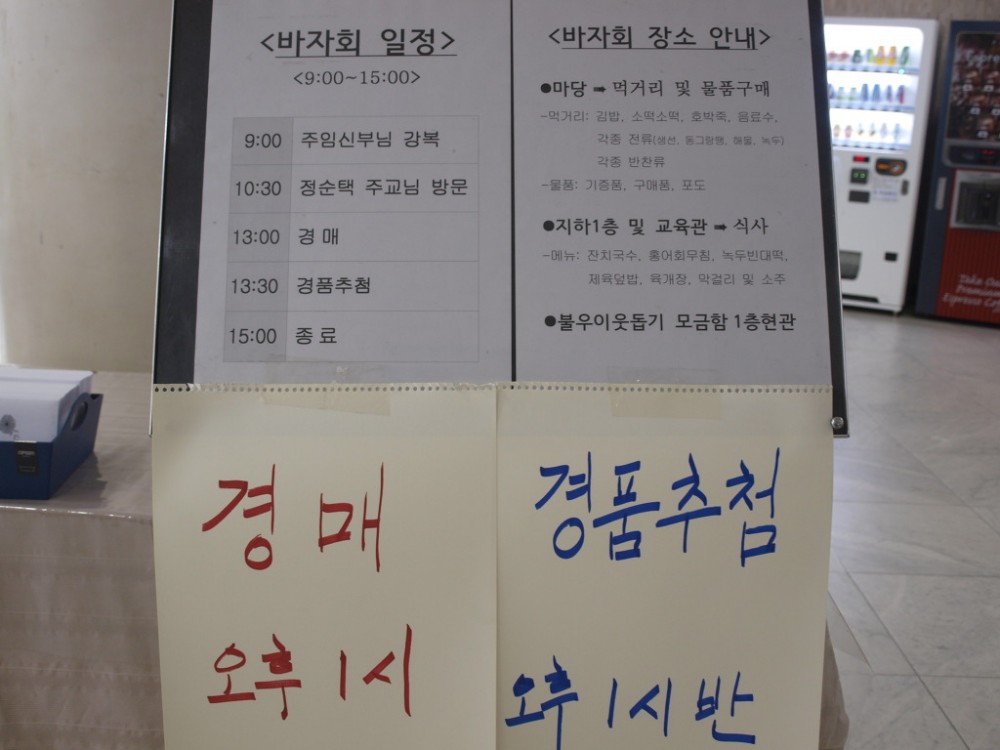 <바자회 일정>
<9:00~15:00>
9:00 주임신부님 강복
10:30 정순택 주교님 방문
13:00 경 매
13:30 경품추첨
15:00 종 료
<바자회 장소 안내>
●마당 ➡ 먹거리 및 물품구매
-먹거리: 김밥, 소떡소떡, 호박죽, 음료수,
각종 전류(생선, 동그랑땡, 해물, 녹두)
각종 반찬류
-물품: 기증품, 구매품, 포도
●지하1층 및 교육관 ➡ 식사
-메뉴: 잔치국수, 홍어회무침, 녹두빈대떡,
제육덮밥, 육개장, 막걸리 및 소주
●불우이웃돕기 모금함 1층현관
경 매
오후 1시
경품추첨
오후 1시반
Take Out
Espresso